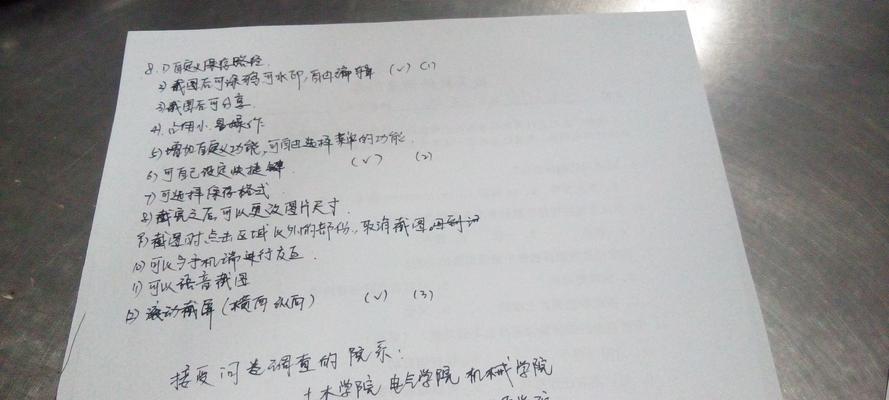 8. 1) 自定义保存路径.
2) 截图后可涂鸦可水印, 自由编辑 (√) (1)
3) 截图后可分享.
4. 占用小 易操作.
5) 增加自定义功能, 可自由选择菜单的功能.
6) 可自己设定快捷键 (√) (2)
7) 可选择保存格式.
8) 截完之后, 可以更改图片尺寸.
9) 截图时点击区域以外的部份, 取消截图
10) 可以与手机端进行交互.
11) 可以语音截图
12) 滚动截屏 (横向 纵向) (√) (3)
接受问卷调查的院系:
土木学院 电气学院 机械学院